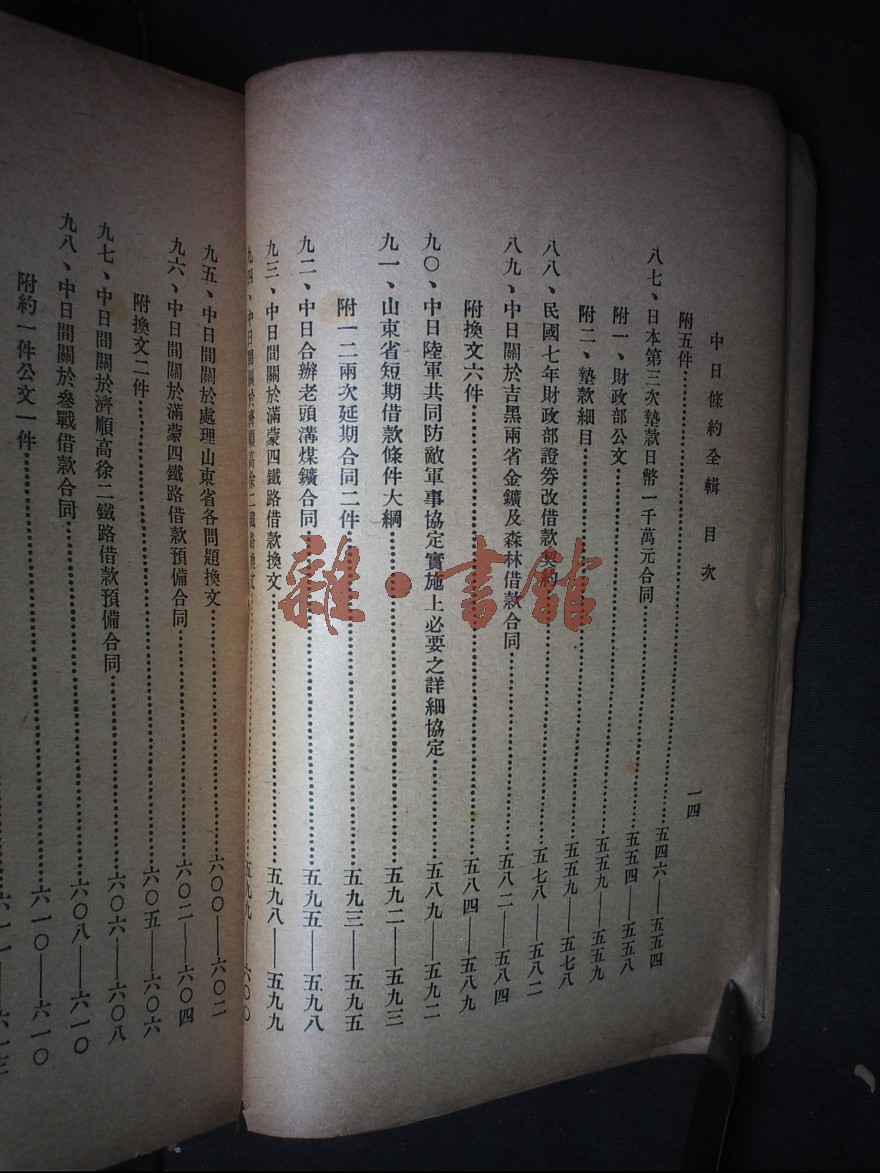 中日條約全輯 目次 一四
附五件……五四六——五五四
八七、日本第三次墊款日幣一千萬元合同……五五四——五五八
附一、財政部公文……五五九——五五九
附二、墊款細目……五五九——五七八
八八、民國七年財政部證券改借款契約……五七八——五八二
八九、中日關於吉黑兩省金鑛及森林借款合同……五八二——五八四
附換文六件……五八四——五八九
九〇、中日陸軍共同防敵軍事協定實施上必要之詳細協定……五八九——五九二
九一、山東省短期借款條件大綱……五九二——五九三
附一二兩次延期合同二件……五九三——五九五
九二、中日合辦老頭溝煤鑛合同……五九五——五九八
九三、中日間關於滿蒙四鐵路借款換文……五九八——五九九
九四、中日間關於濟順高徐二鐵路換文……五九九 六〇〇
九五、中日間關於處理山東省各問題換文……六〇〇——六〇二
九六、中日間關於滿蒙四鐵路借款預備合同……六〇二——六〇四
附換文二件……六〇五——六〇六
九七、中日間關於濟順高徐二鐵路借款預備合同……六〇六——六〇八
九八、中日間關於參戰借款合同……六〇八——六一〇
附約一件公文一件……六一〇——六一〇
雜·書館